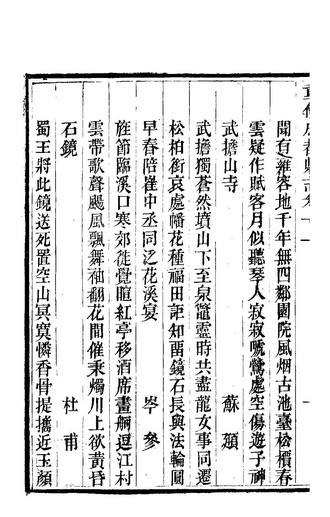 聞有雍容地千年無四鄰園院風烟古池臺松檟春
雲疑作賦客月似聽琴人寂寂嗁鶯處空傷遊子神
武擔山寺　蘇頲
武擔獨蒼然墳山下至泉鼈靈時共盡龍女事同遷
松柏銜哀處幡花種福田詎知畱鏡石長與法輪圓
早春陪崔中丞同泛花溪宴　岑參
旌節臨溪口寒郊徒覺暄紅亭移酒席畫舸逗江村
雲帶歌聲颺風飄舞袖翻花間催秉燭川上欲黃昏
石鏡　杜甫
蜀王將此鏡送死置空山冥寞憐香骨提攜近玉顏